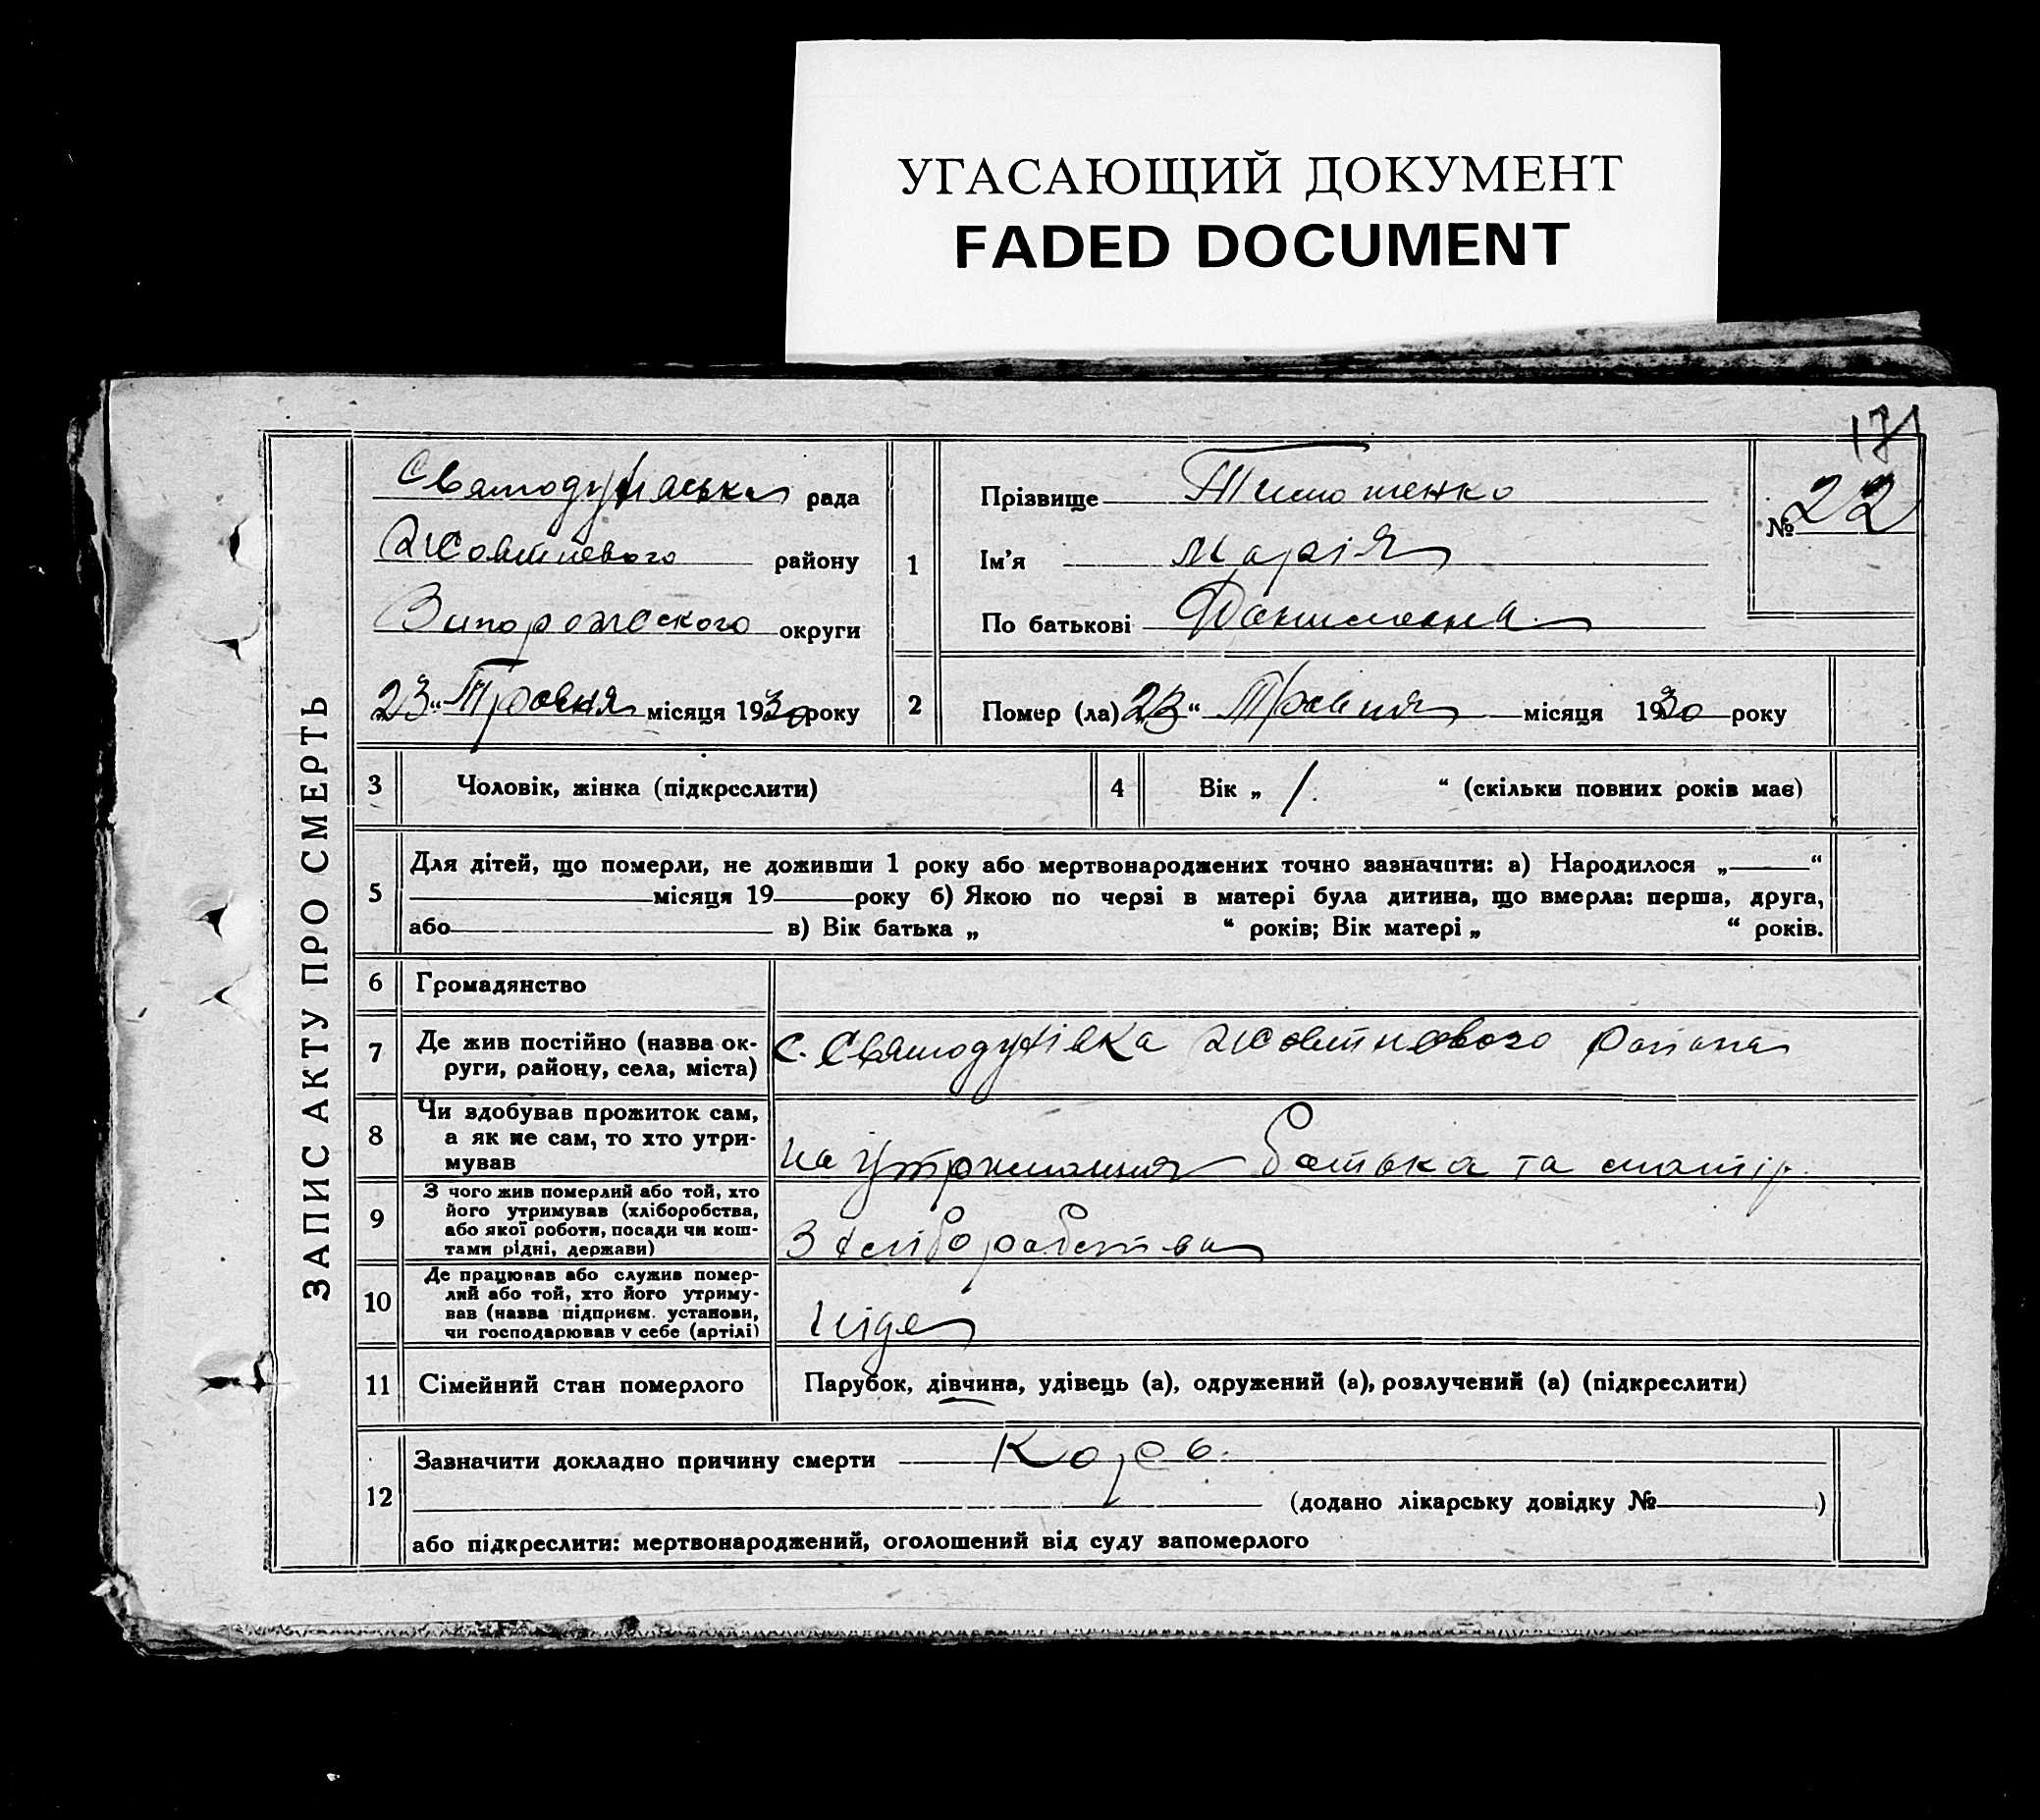 УГАСАЮЩИЙ ДОКУМЕНТ
FADED DOCUMENT
171
ЗАПИС АКТУ ПРО СМЕРТЬ
Святодухівська рада
Жовтневого району
Запорожського округи
23 „ Травня місяця 1930 року
1
Прізвище Тимошенко
Ім'я Марія
По батькові
№ 22
2
Помер (ла) 23 “ Травня місяця 1930 року
3 Чоловік, жінка (підкреслити)
4 Вік „ 1. “ (скільки повних років має)
5
Для дітей, що померли, не доживши 1 року або мертвонароджених точно зазначити: а) Народилося „ “
місяця 19 року б) Якою по черзі в матері була дитина, що вмерла: перша, друга,
або в) Вік батька „ “ років; Вік матері „ “ років.
6 Громадянство
7
Де жив постійно (назва ок-
руги, району, села, міста)
с. Святодухівка Жовтневого района
8
Чи здобував прожиток сам,
а як не сам, то хто утри-
мував
на утримання батька та матір.
9
З чого жив померлий або той, хто
його утримував (хліборобства,
або якої роботи, посади чи кош-
тами рідні, держави)
З хліборобства
10
Де працював або служив помер-
лий або той, хто його утриму-
вав (назва підприєм. установи,
чи господарював у себе (артілі)
Ніде
11 Сімейний стан померлого
Парубок, дівчина, удівець (а), одружений (а), розлучений (а) (підкреслити)
12
Зазначити докладно причину смерти Корь.
(додано лікарську довідку № )
або підкреслити: мертвонароджений, оголошений від суду запомерлого